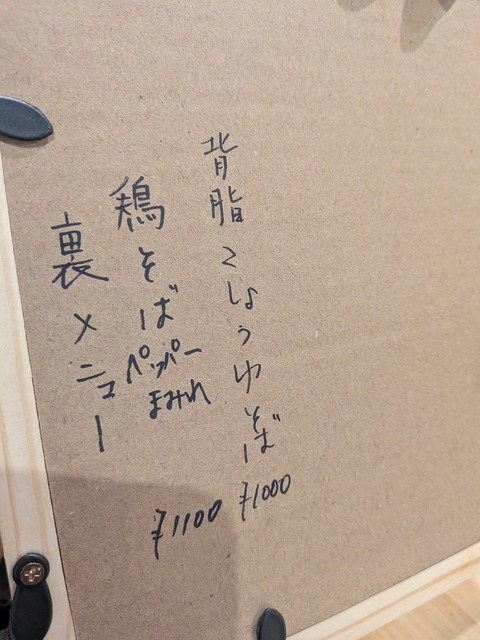 背脂しょうゆそば ¥1000
鶏そば ペッパーまみれ ¥1100
裏メニュー